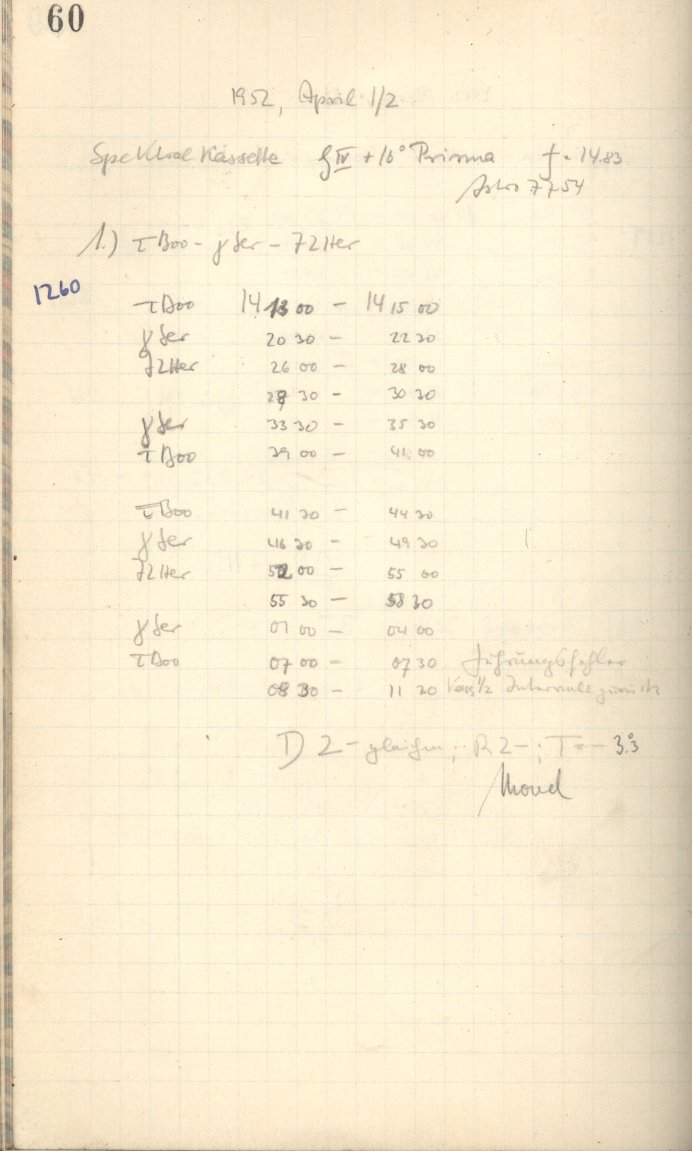 60
1952, April 1/2
Spektral Kassette G IV + 10° Prisma f = 14.83
Astro 7754
1.) τ Boo - γ Ser - 72 Her
1260
τ Boo 14 13 00 - 14 15 00
γ Ser 20 30 - 22 30
72 Her 26 00 - 28 00
28 30 - 30 30
γ Ser 33 30 - 35 30
τ Boo 39 00 - 41 00
τ Boo 41 30 - 44 30
γ Ser 46 30 - 49 30
72 Her 52 00 - 55 00
55 30 - 58 30
γ Ser 01 00 - 04 00
τ Boo 07 00 - 07 30 Führungsfehler
08 30 - 11 30 Kass 1/2 Intervalle zurück
D 2- ; R 2- ; T = - 3.°3
Mond